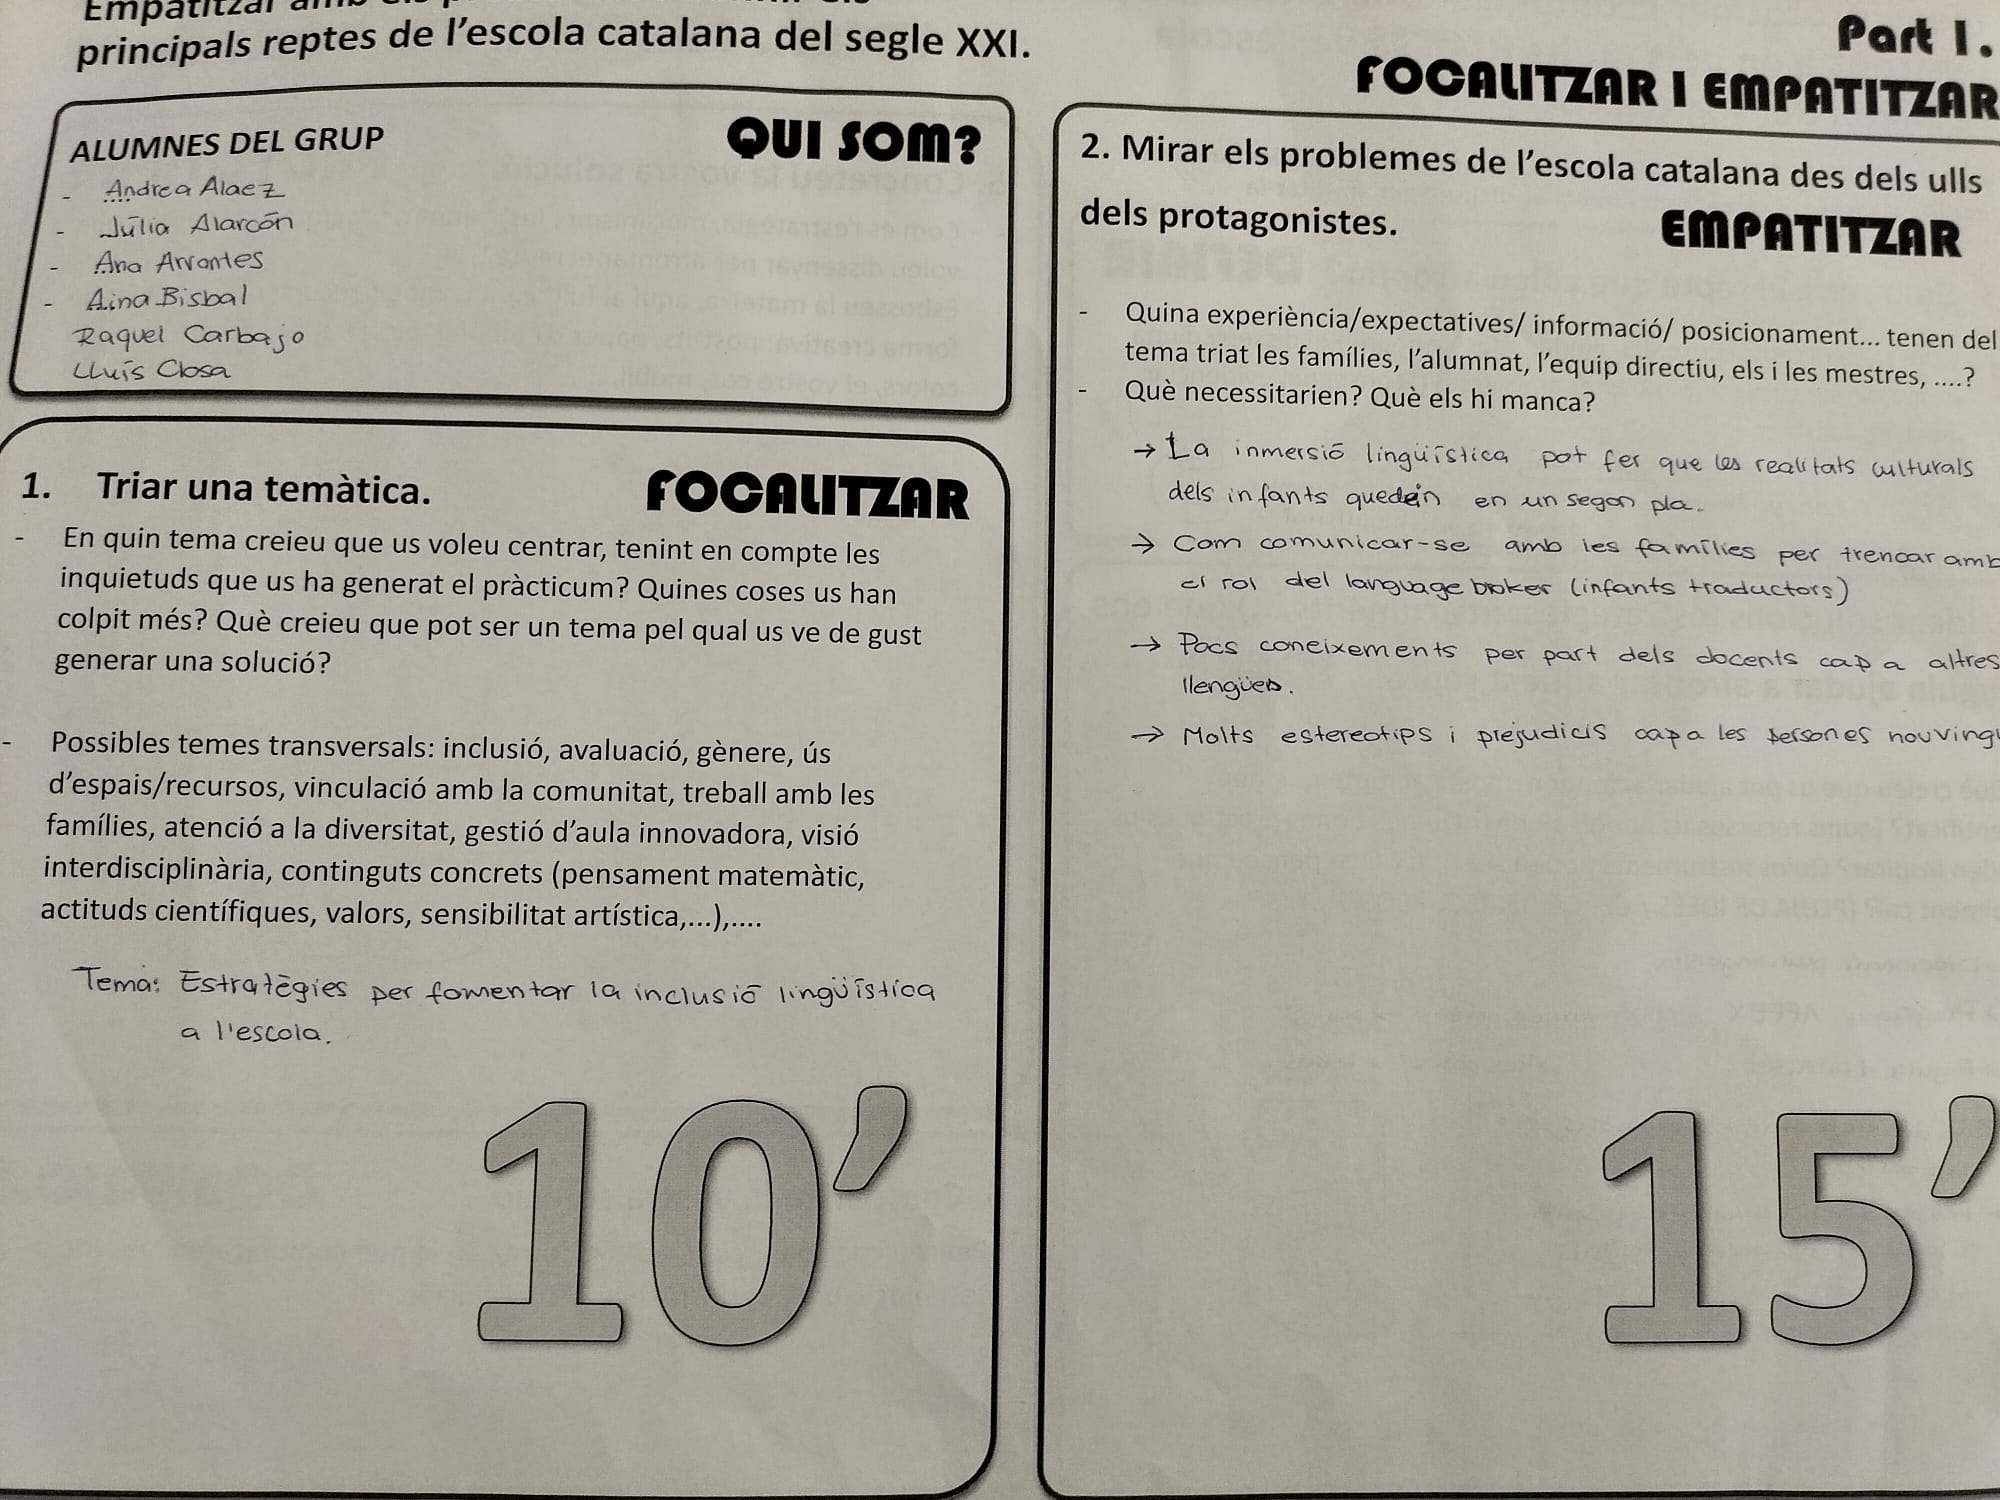 Empatitzar amb els
principals reptes de l’escola catalana del segle XXI.
Part I.
FOCALITZAR I EMPATITZAR
ALUMNES DEL GRUP
QUI SOM?
- Andrea Alaez
- Júlia Alarcón
- Ana Arrontes
- Aina Bisbal
Raquel Carbajo
Lluís Closa
1. Triar una temàtica.
FOCALITZAR
- En quin tema creieu que us voleu centrar, tenint en compte les
inquietuds que us ha generat el pràcticum? Quines coses us han
colpit més? Què creieu que pot ser un tema pel qual us ve de gust
generar una solució?
- Possibles temes transversals: inclusió, avaluació, gènere, ús
d’espais/recursos, vinculació amb la comunitat, treball amb les
famílies, atenció a la diversitat, gestió d’aula innovadora, visió
interdisciplinària, continguts concrets (pensament matemàtic,
actituds científiques, valors, sensibilitat artística,...),....
Tema: Estratègies per fomentar la inclusió lingüística
a l'escola.
10’
2. Mirar els problemes de l’escola catalana des dels ulls
dels protagonistes.
EMPATITZAR
- Quina experiència/expectatives/ informació/ posicionament... tenen del
tema triat les famílies, l’alumnat, l’equip directiu, els i les mestres, ....?
- Què necessitarien? Què els hi manca?
→ La inmersió lingüística pot fer que les realitats culturals
dels infants quedein en un segon pla.
→ Com comunicar-se amb les famílies per trencar amb
el rol del language broker (infants traductors)
→ Pocs coneixements per part dels docents cap a altres
llengües.
→ Molts estereotips i prejudicis cap a les persones nouvingu
15’